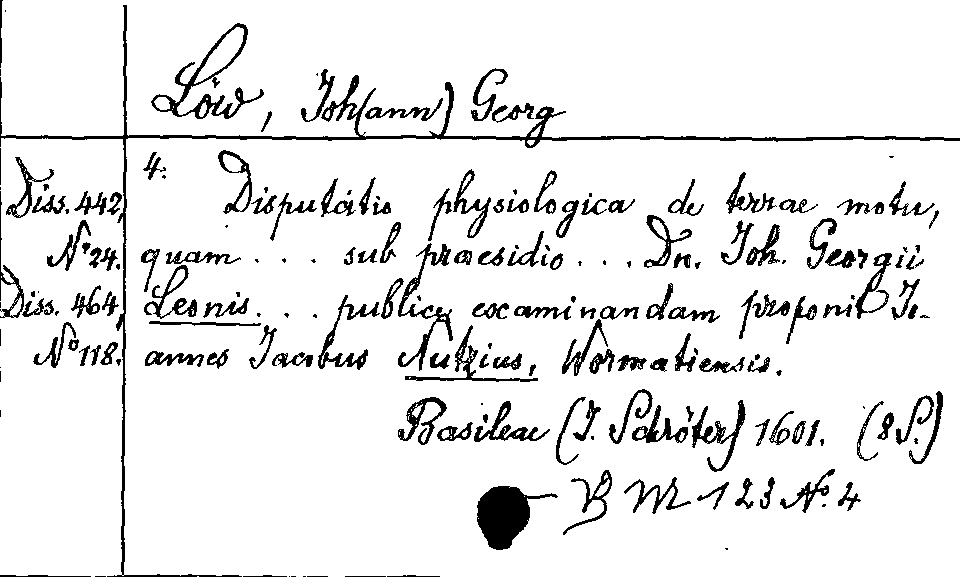 Löw, Joh(ann) Georg
4. Disputatio physiologica de terrae motu,
Diss. 442, quam . . . sub praesidio . . . Dn. Joh. Georgii
No 24. Leonis . . . publice examinandam proponit Jo-
Diss. 464, annes Jacobus Nutzius, Wormatiensis.
No 118.
Basileae (J. Schröter) 1601. (8 S.)
— B M 123 No. 4